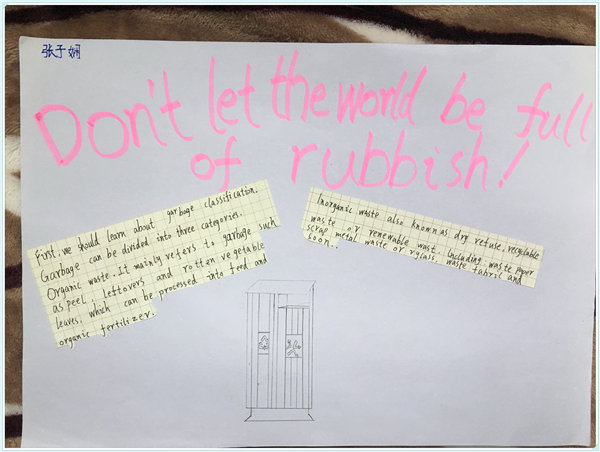 张于娴
Don't let the world be full
of rubbish!
First, we should learn about garbage classification.
Garbage can be divided into three categories.
Organic waste. It mainly refers to garbage such
as peel, leftovers and rotten vegetable
leaves, which can be processed into feed and
organic fertilizer.
Inorganic waste also known as dry refuse, recyclable
waste or renewable wast including waste paper
scrap metal waste or rglass, waste fabric and
soon..